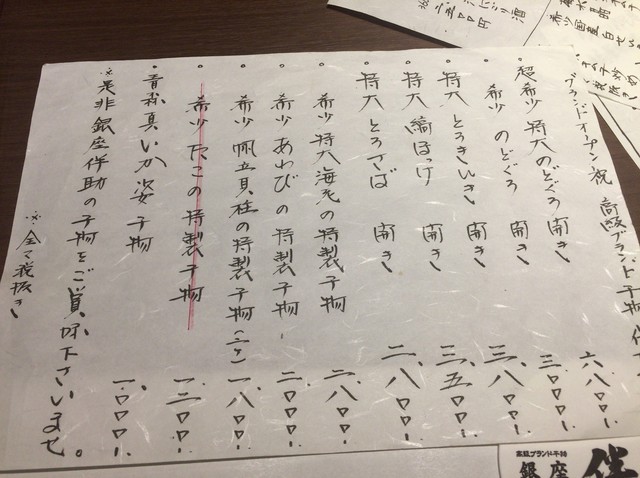 ブランドオープン祝 高級ブランド干物
超希少 特大のどぐろ 開き 六、八〇〇、
希少 のどぐろ 開き 三、〇〇〇、
特大 とろきんき 開き 三、八〇〇、
特大 縞ほっけ 開き 三、五〇〇、
特大 とろさば 開き 二、八〇〇、
希少 特大海老の特製干物 一、八〇〇、
希少 あわびの特製干物 二、〇〇〇、
希少 帆立貝柱の特製干物(二ケ) 一、八〇〇、
希少 たこの特製干物 一、二〇〇、
青森真いか姿干物 一、〇〇〇、
※是非銀座伴助の干物をご賞味下さいませ。
※全て税抜き
高級ブランド干物
銀座
伴